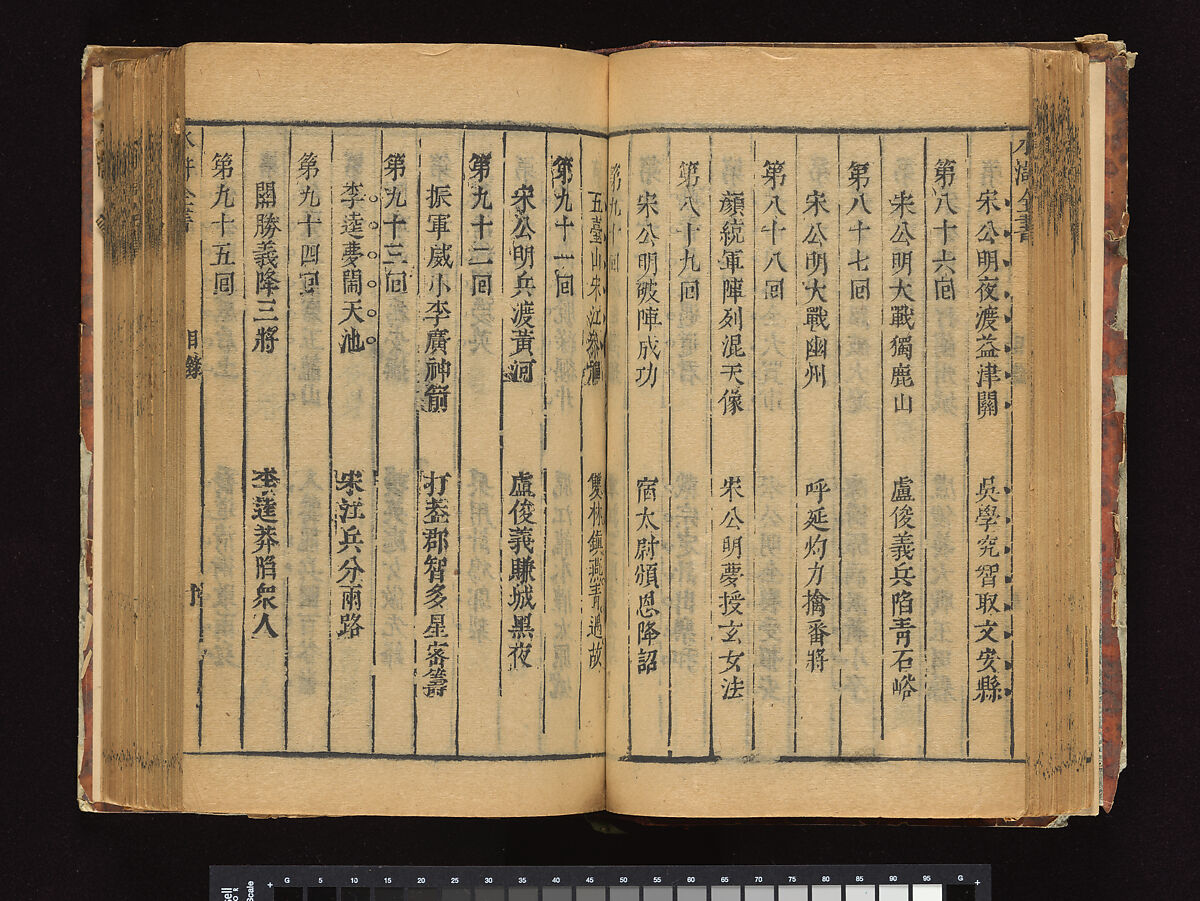 水滸全書
宋公明夜渡益津關 吳學究智取文安縣
第八十六回
宋公明大戰獨鹿山 盧俊義兵陷青石峪
第八十七回
宋公明大戰幽州 呼延灼力擒番將
第八十八回
顏統軍陣列混天像 宋公明夢授玄女法
第八十九回
宋公明破陣成功 宿太尉頒恩降詔
第九十回
五臺山宋江參禪 雙林鎮燕青遇故
第九十一回
宋公明兵渡黃河 盧俊義賺城黑夜
第九十二回
振軍威小李廣神箭 打蓋郡智多星密籌
第九十三回
李逵夢鬧天池 宋江兵分兩路
第九十四回
關勝義降三將 李逵莽陷衆人
第九十五回
水滸全書 目錄
G 5 10 15 20 25 30 35 40 45 50 55 60 65 70 75 80 85 90 95 G
Scale